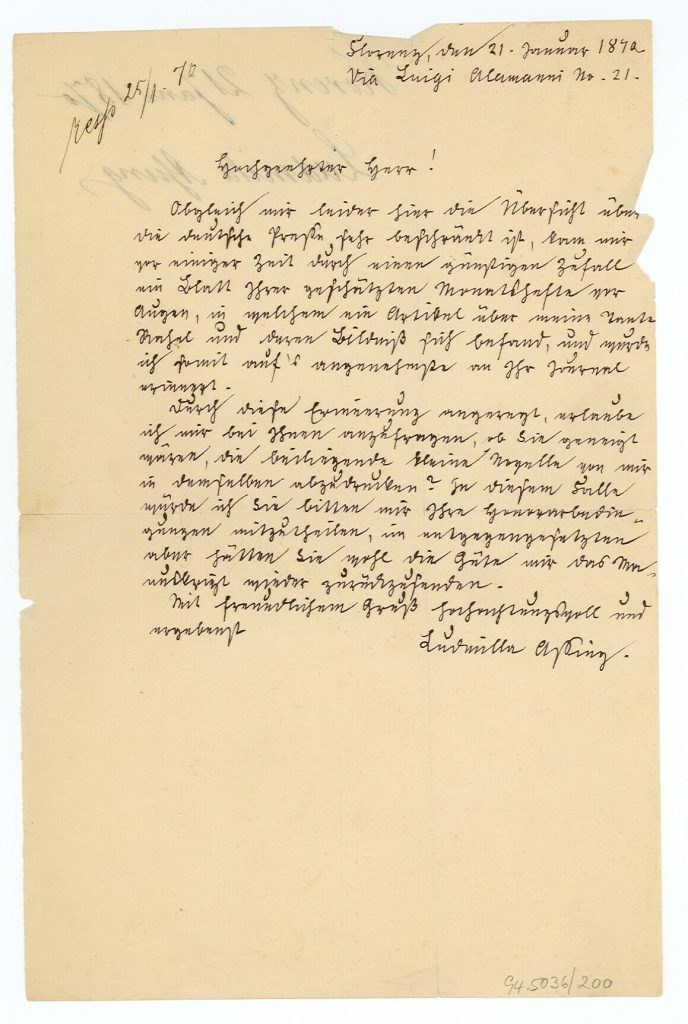 Florenz, den 21. Januar 1870
Via Luigi Alamanni No. 21.
25/1. 70
Hochgeehrter Herr!
Obgleich mir leider hier die Übersicht über
die deutsche Presse sehr beschränkt ist, kam mir
vor einiger Zeit durch einen günstigen Zufall
ein Blatt Ihrer geschätzten Monatshefte vor
Augen, in welchem ein Artikel über meine Tante
Rahel und deren Bildniß sich befand, und wurde
ich somit auf's angenehmste an Ihr Journal
erinnert.
Durch diese Erinnerung angeregt, erlaube
ich mir bei Ihnen anzufragen, ob Sie geneigt
wären, die beiliegende kleine Novelle von mir
in demselben abzudrucken? In diesem Falle
würde ich Sie bitten mir Ihre Honorarbedin-
gungen mitzutheilen, im entgegengesetzten
aber hätten Sie wohl die Güte mir das Ma-
nuskript wieder zurückzusenden.
Mit freundlichem Gruß hochachtungsvoll und
ergebenst
Ludmilla Assing.
94.5036/200